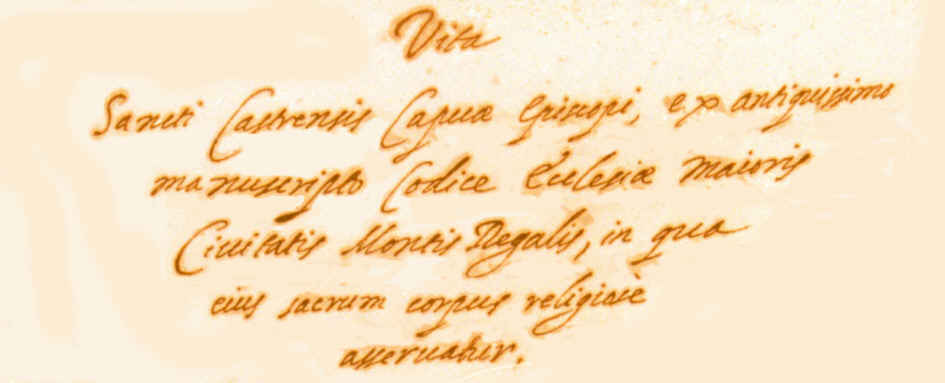 Vita
Sancti Castrensis Capuæ Episcopi, ex antiquissimo
manuscripto Codice Ecclesiæ maioris
Ciuitatis Montis Regalis, in qua
eius sacrum corpus religiose
asseruatur.